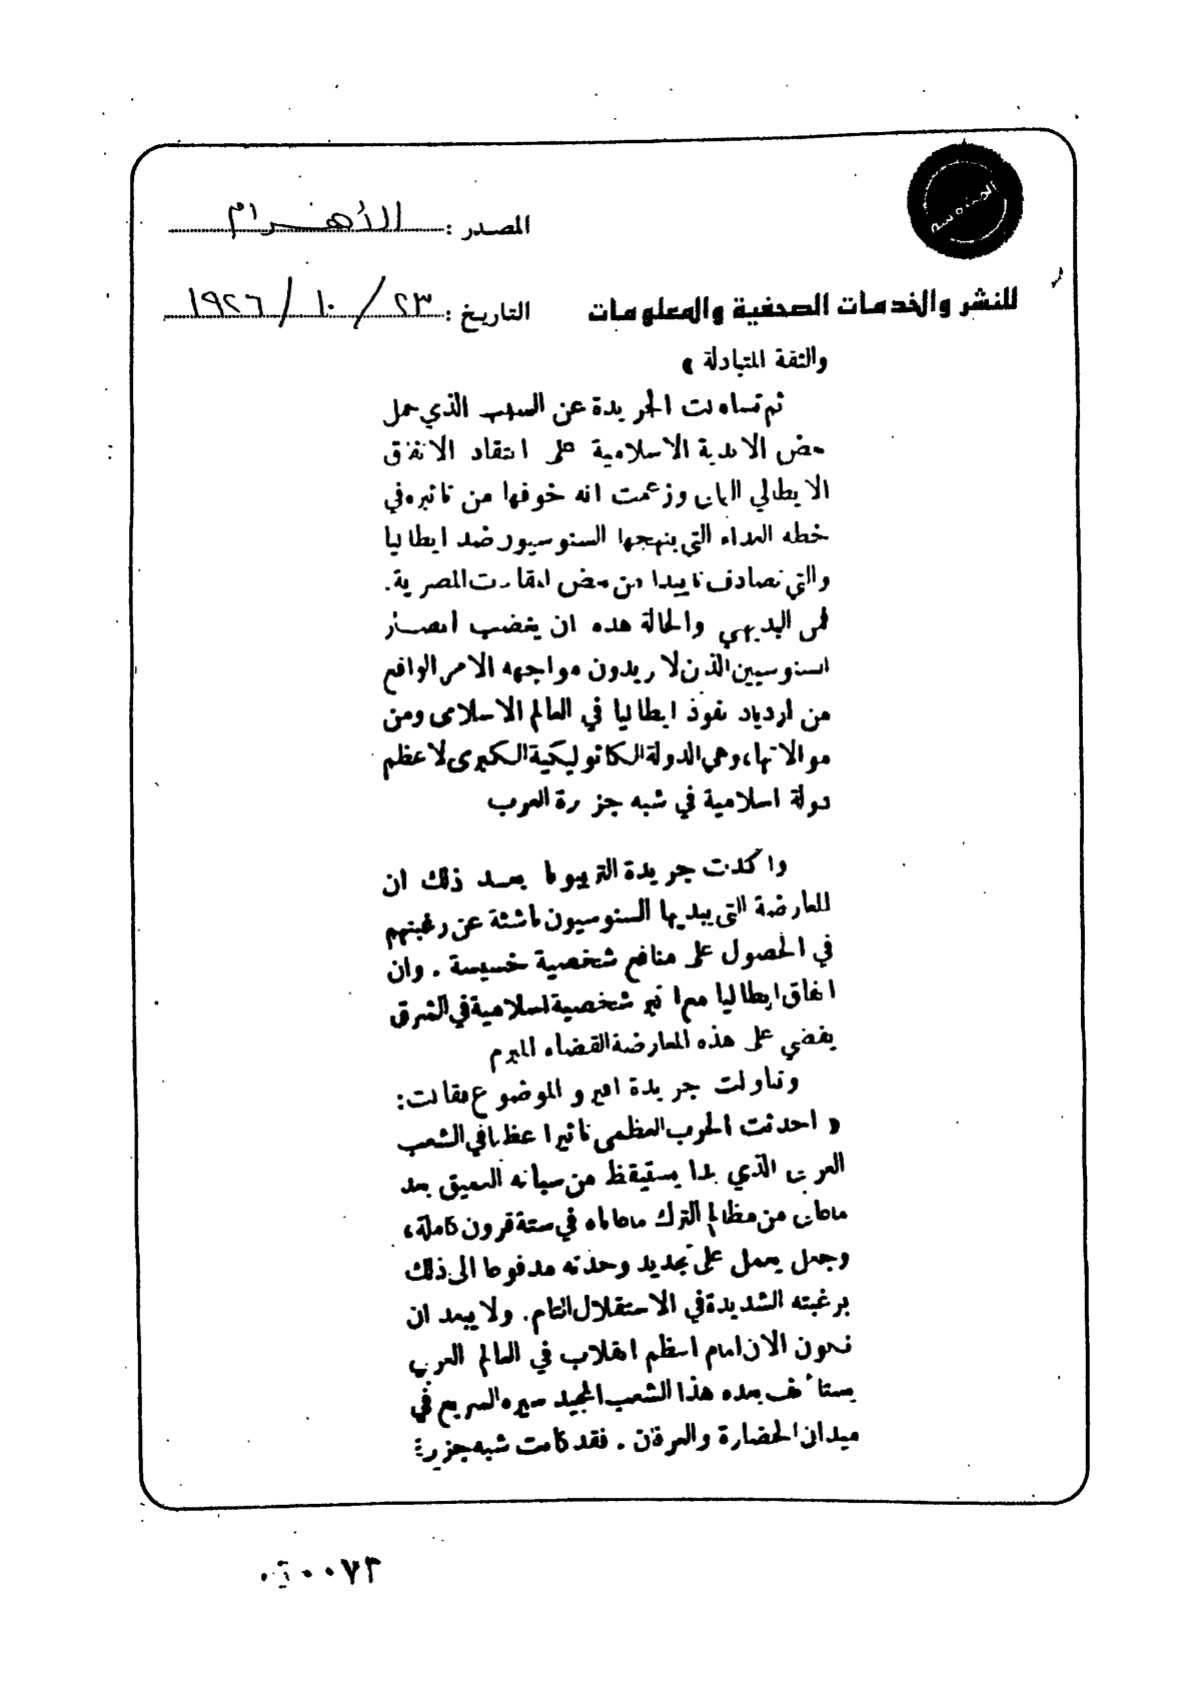 المصدر : الأهرام
للنشر والخدمات الصحفية والمعلومات
التاريخ : ٢٣ / ١٠ / ١٩٢٦
والثقة المتبادلة »
ثم تساءلت الجريدة عن السبب الذي حمل
بعض الاندية الاسلامية على انتقاد الاتفاق
الايطالي اليماني وزعمت انه خوفها من تاثيره في
خطه العداء التي ينهجها السنوسيون ضد ايطاليا
والتي تصادف تاييدا من بعض المقامات المصرية.
فمن البديهي والحالة هذه ان يغضب انصار
السنوسيين الذين لا يريدون مواجهه الامر الواقع
من ازدياد نفوذ ايطاليا في العالم الاسلامي ومن
موالاتها، وهي الدولة الكاثوليكية الكبرى لاعظم
دولة اسلامية في شبه جزيرة العرب
واكدت جريدة التريبونا بعد ذلك ان
المعارضة التي يبديها السنوسيون ناشئة عن رغبتهم
في الحصول على منافع شخصية خسيسة . وان
اتفاق ايطاليا مع اكبر شخصية اسلامية في الشرق
يقضي على هذه المعارضة القضاء المبرم
وتناولت جريدة امبرو الموضوع فقالت:
« احدثت الحرب العظمى تاثيرا عظيما في الشعب
العربي الذي بدا يستيقظ من سباته العميق بعد
ماعانى من مظالم الترك ماعاناه في ستة قرون كاملة،
وجعل يعمل على تجديد وحدته مدفوعا الى ذلك
برغبته الشديدة في الاستقلال التام. ولا يبعد ان
نكون الان امام اعظم انقلاب في العالم العربي
يستأنف بعده هذا الشعب المجيد سيره السريع في
ميدان الحضارة والعرفان . فقد كانت شبه جزيرة
٠٠٧٣